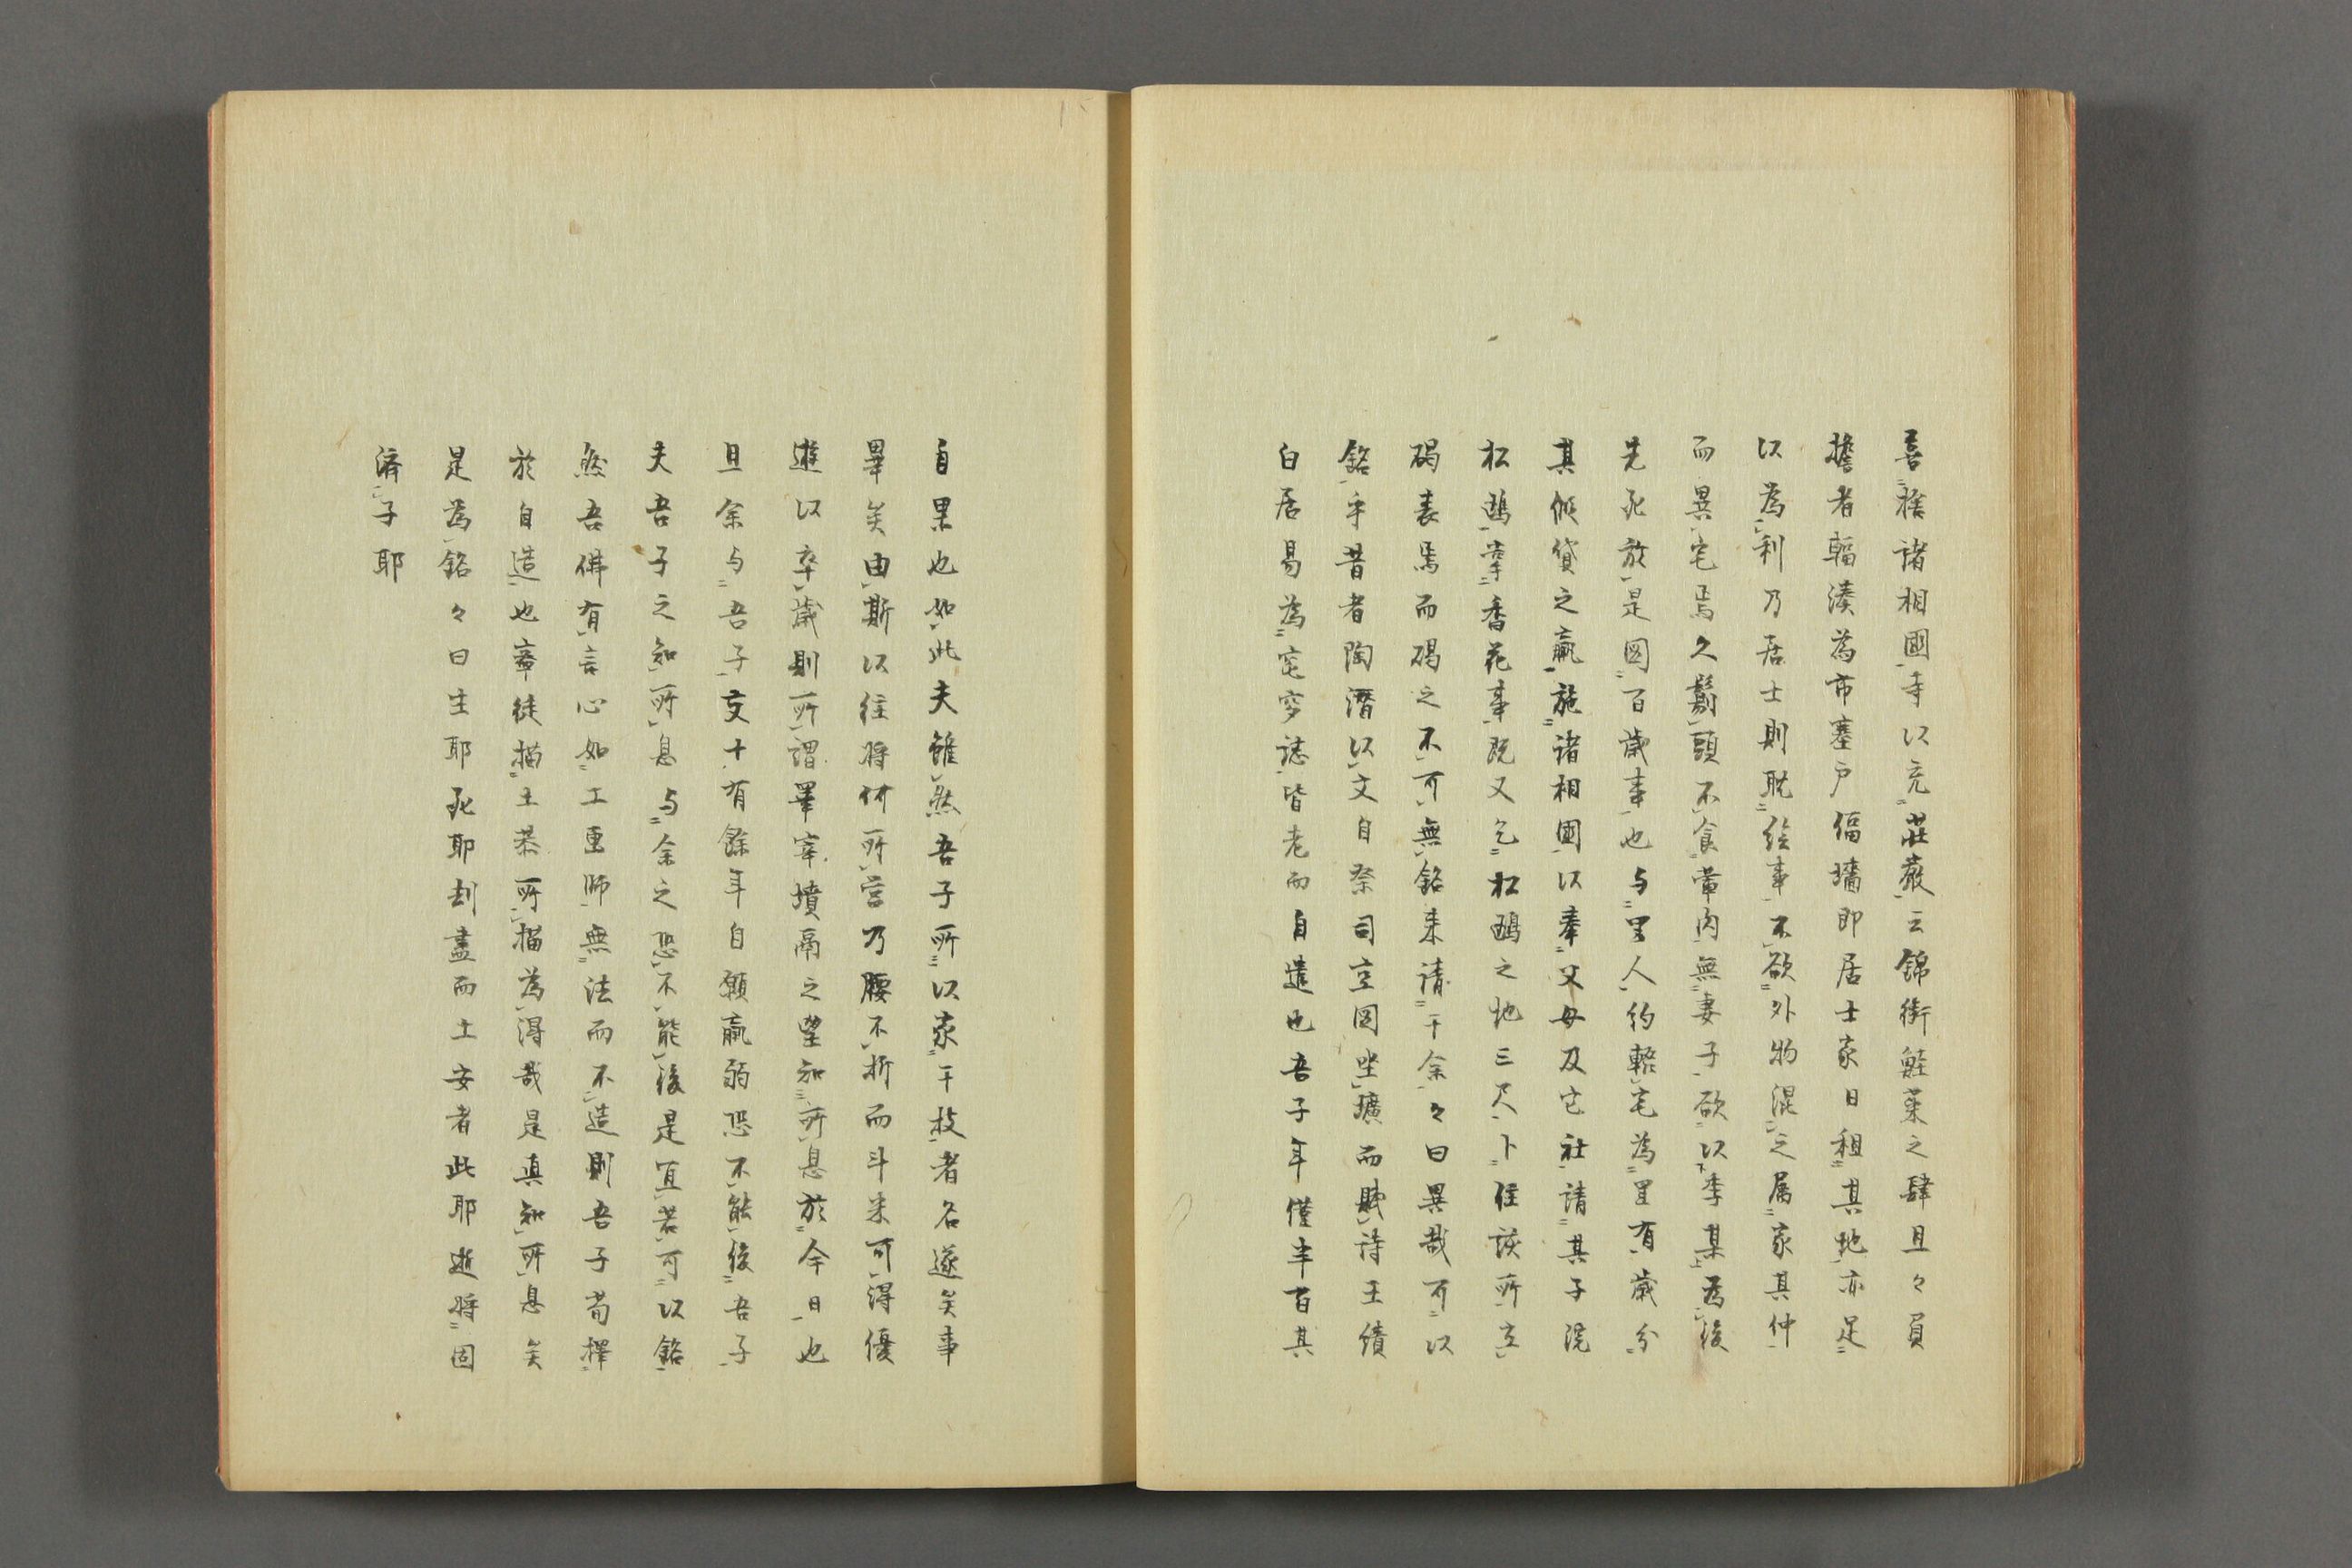 喜捨諸相國寺以充莊嚴云錦街鮭菜之肆且々員
擔者輻湊為市塞戸偪墻即居士家日租其地亦足
以為利乃居士則耽絵事不欲外物混之屬家其仲
而異宅焉久鬄頭不食葷肉無妻子欲以季某為後
先死放是図百歳事也与里人約輅宅為里有歳分
其僦貸之贏施諸相國以奉父母及它社請其子浣
松鷗掌香花事既又乞松鷗之地三尺卜住該所立
碣表焉而碣之不可無銘来請于余々曰異哉可以
銘乎昔者陶潛以文自祭司空図坐壙而賦詩王績
白居易為窀穸誌皆老而自遣也吾子年僅半百其
自果也如此夫雖然吾子所以家于技者名遂矣事
畢矣由斯以往将何所営乃腰不折而斗米可得優
遊以卒歳則所謂睪宰墳鬲之望知所息於今日也
且余与吾子交十有餘年自顧羸弱恐不能後吾子
夫吾子之知所息与余之恐不能後是宜若可以銘
然吾佛有言心如工畫師無法而不造則吾子苟擇
於自造也搴徒描土恭所描為得哉是真知所息矣
是為銘々曰生耶死耶刦盡而土安者此耶逝将固
済子耶